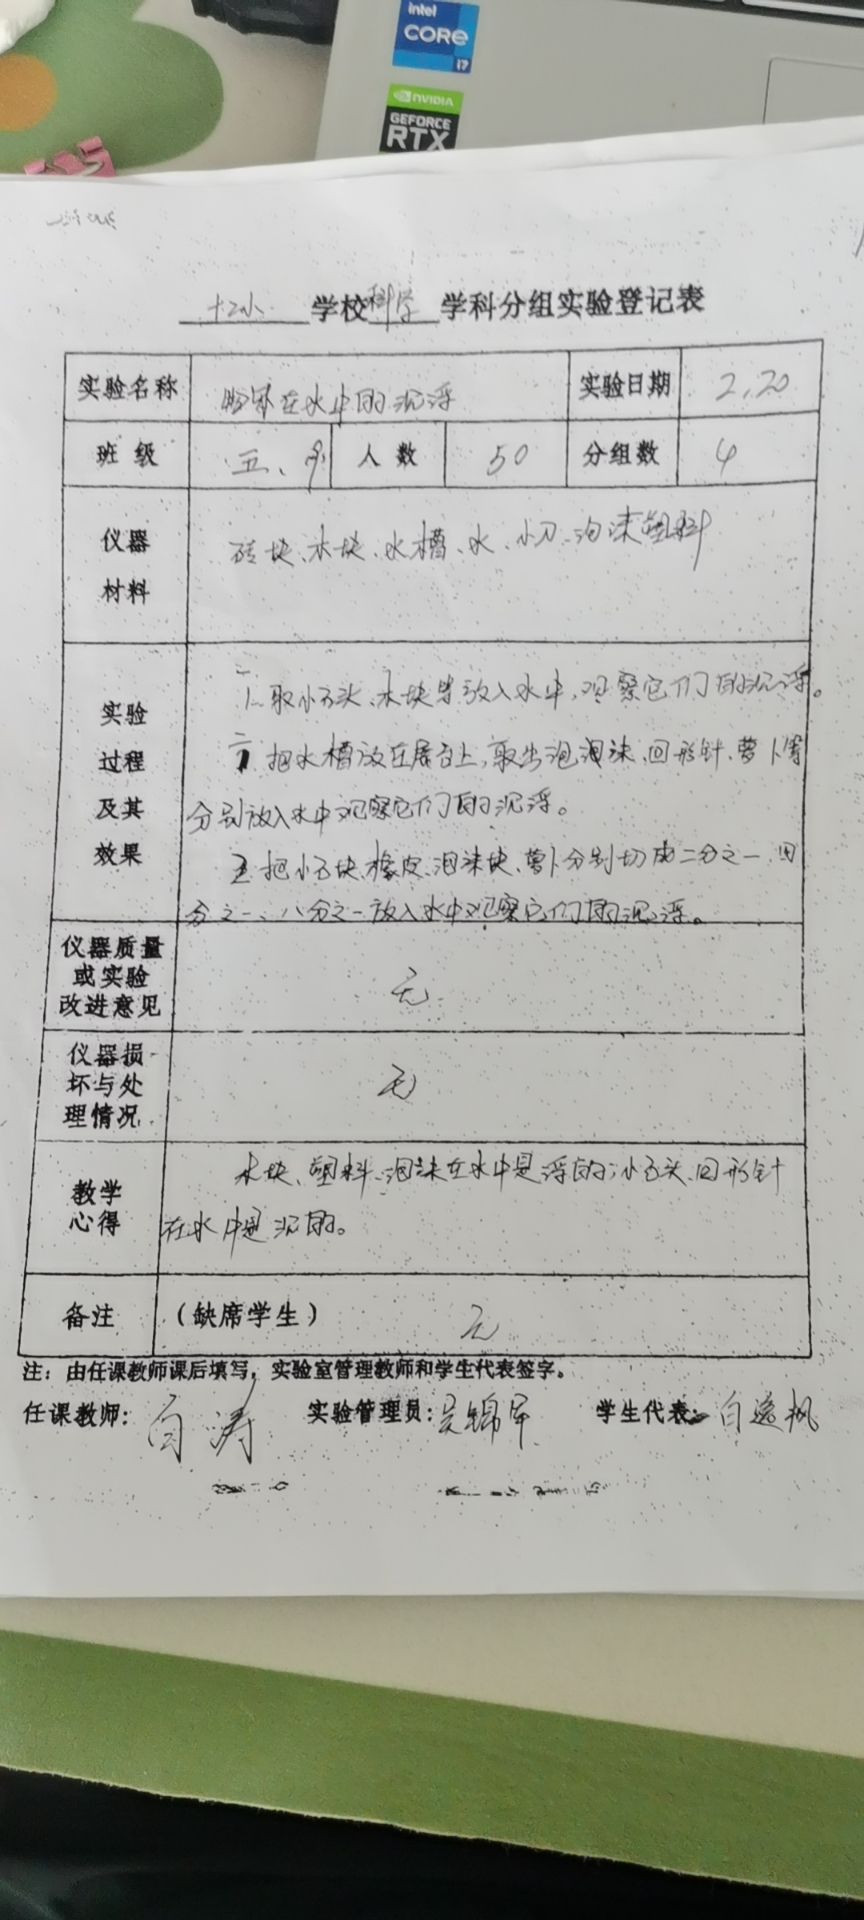 intel
CORe
i7
NVIDIA
GEFORCE
RTX
十二小 学校 科学 学科分组实验登记表
实验名称 物体在水中的沉浮 实验日期 2.20
班 级 五、 人 数 50 分组数 4
仪器
材料
砖块、木块、水槽、水、小刀、泡沫塑料
实验
过程
及其
效果
1、取小石头、木块等放入水中,观察它们的沉浮。
把水槽放在展台上,取出泡泡沫、回形针、萝卜等
分别放入水中观察它们的沉浮。
把小石块、橡皮、泡沫块、萝卜分别切成二分之一、四
分之一、八分之一放入水中观察它们的沉浮。
仪器质量
或实验
改进意见
无
仪器损
坏与处
理情况
无
教学
心得
木块、塑料、泡沫在水中是浮的,小石头、回形针
在水中是沉的。
备注 (缺席学生) 无
注: 由任课教师课后填写, 实验室管理教师和学生代表签字。
任课教师: 白涛 实验管理员: 吴锦军 学生代表: 白逸枫